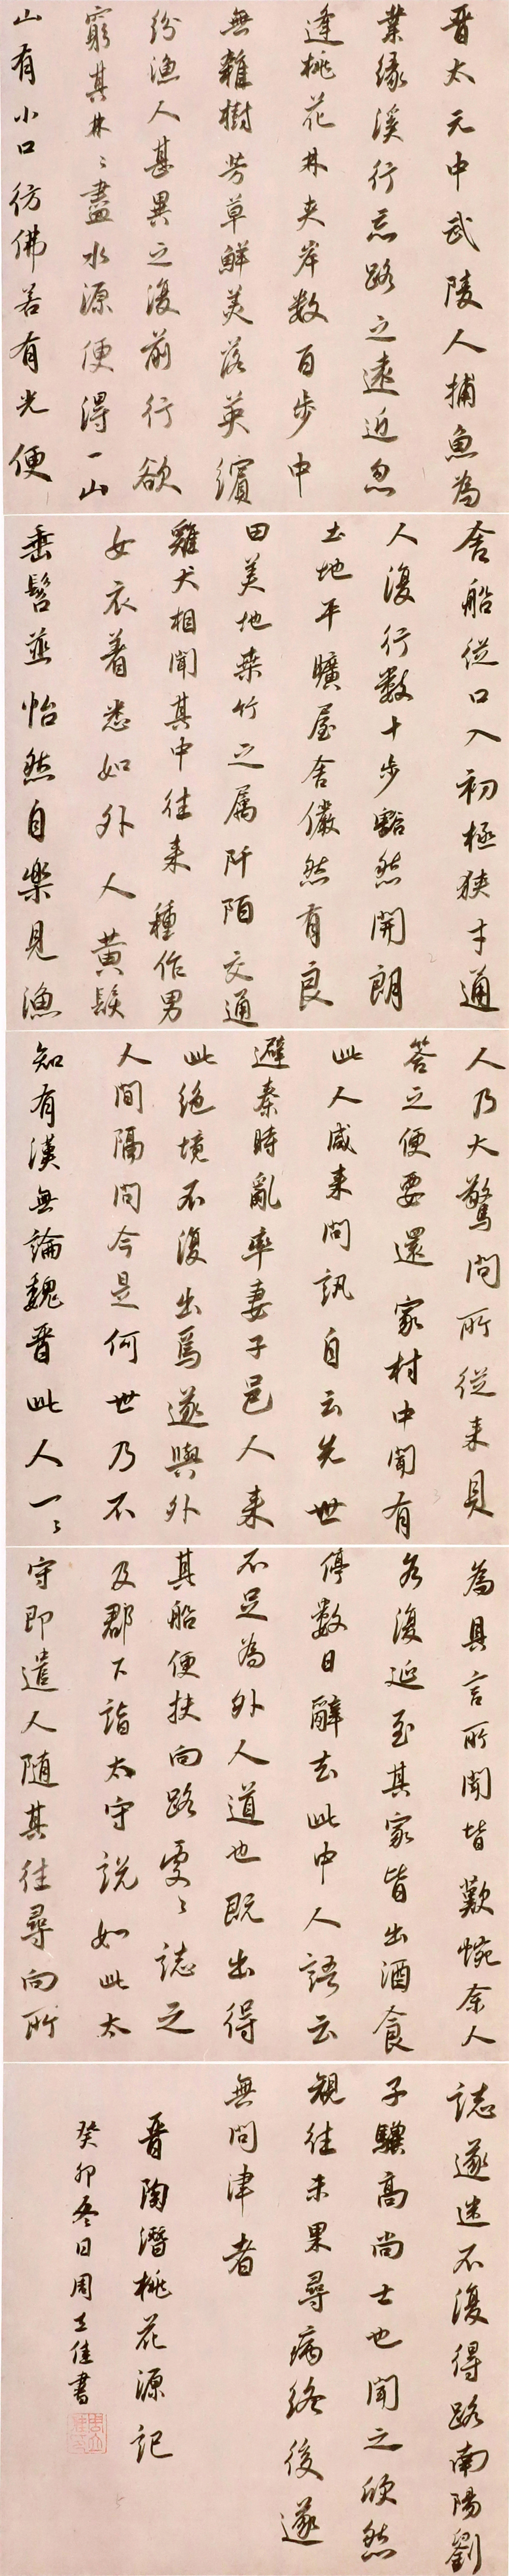 晋太元中武陵人捕魚為
業緣溪行忘路之遠近忽
逢桃花林夾岸數百步中
無雜樹芳草鮮美落英繽
紛漁人甚異之復前行欲
窮其林〻盡水源便得一山
山有小口彷彿若有光便
舍船從口入初極狹才通
人復行數十步豁然開朗
土地平曠屋舍儼然有良
田美地桑竹之属阡陌交通
雞犬相聞其中往来種作男
女衣着悉如外人黄髮
垂髫並怡然自樂見漁
人乃大驚問所從来具
答之便要還家村中聞有
此人咸来問訊自云先世
避秦時亂率妻子邑人来
此絕境不復出焉遂與外
人間隔問今是何世乃不
知有漢無論魏晋此人一〻
為具言所聞皆歎惋余人
各復延至其家皆出酒食
停數日辭去此中人語云
不足為外人道也既出得
其船便扶向路處〻誌之
及郡下詣太守説如此太
守即遣人随其往尋向所
誌遂迷不復得路南陽劉
子驥高尚士也聞之欣然
規往未果尋病終後遂
無問津者
晋陶潛桃花源記
癸卯冬日周立佳書